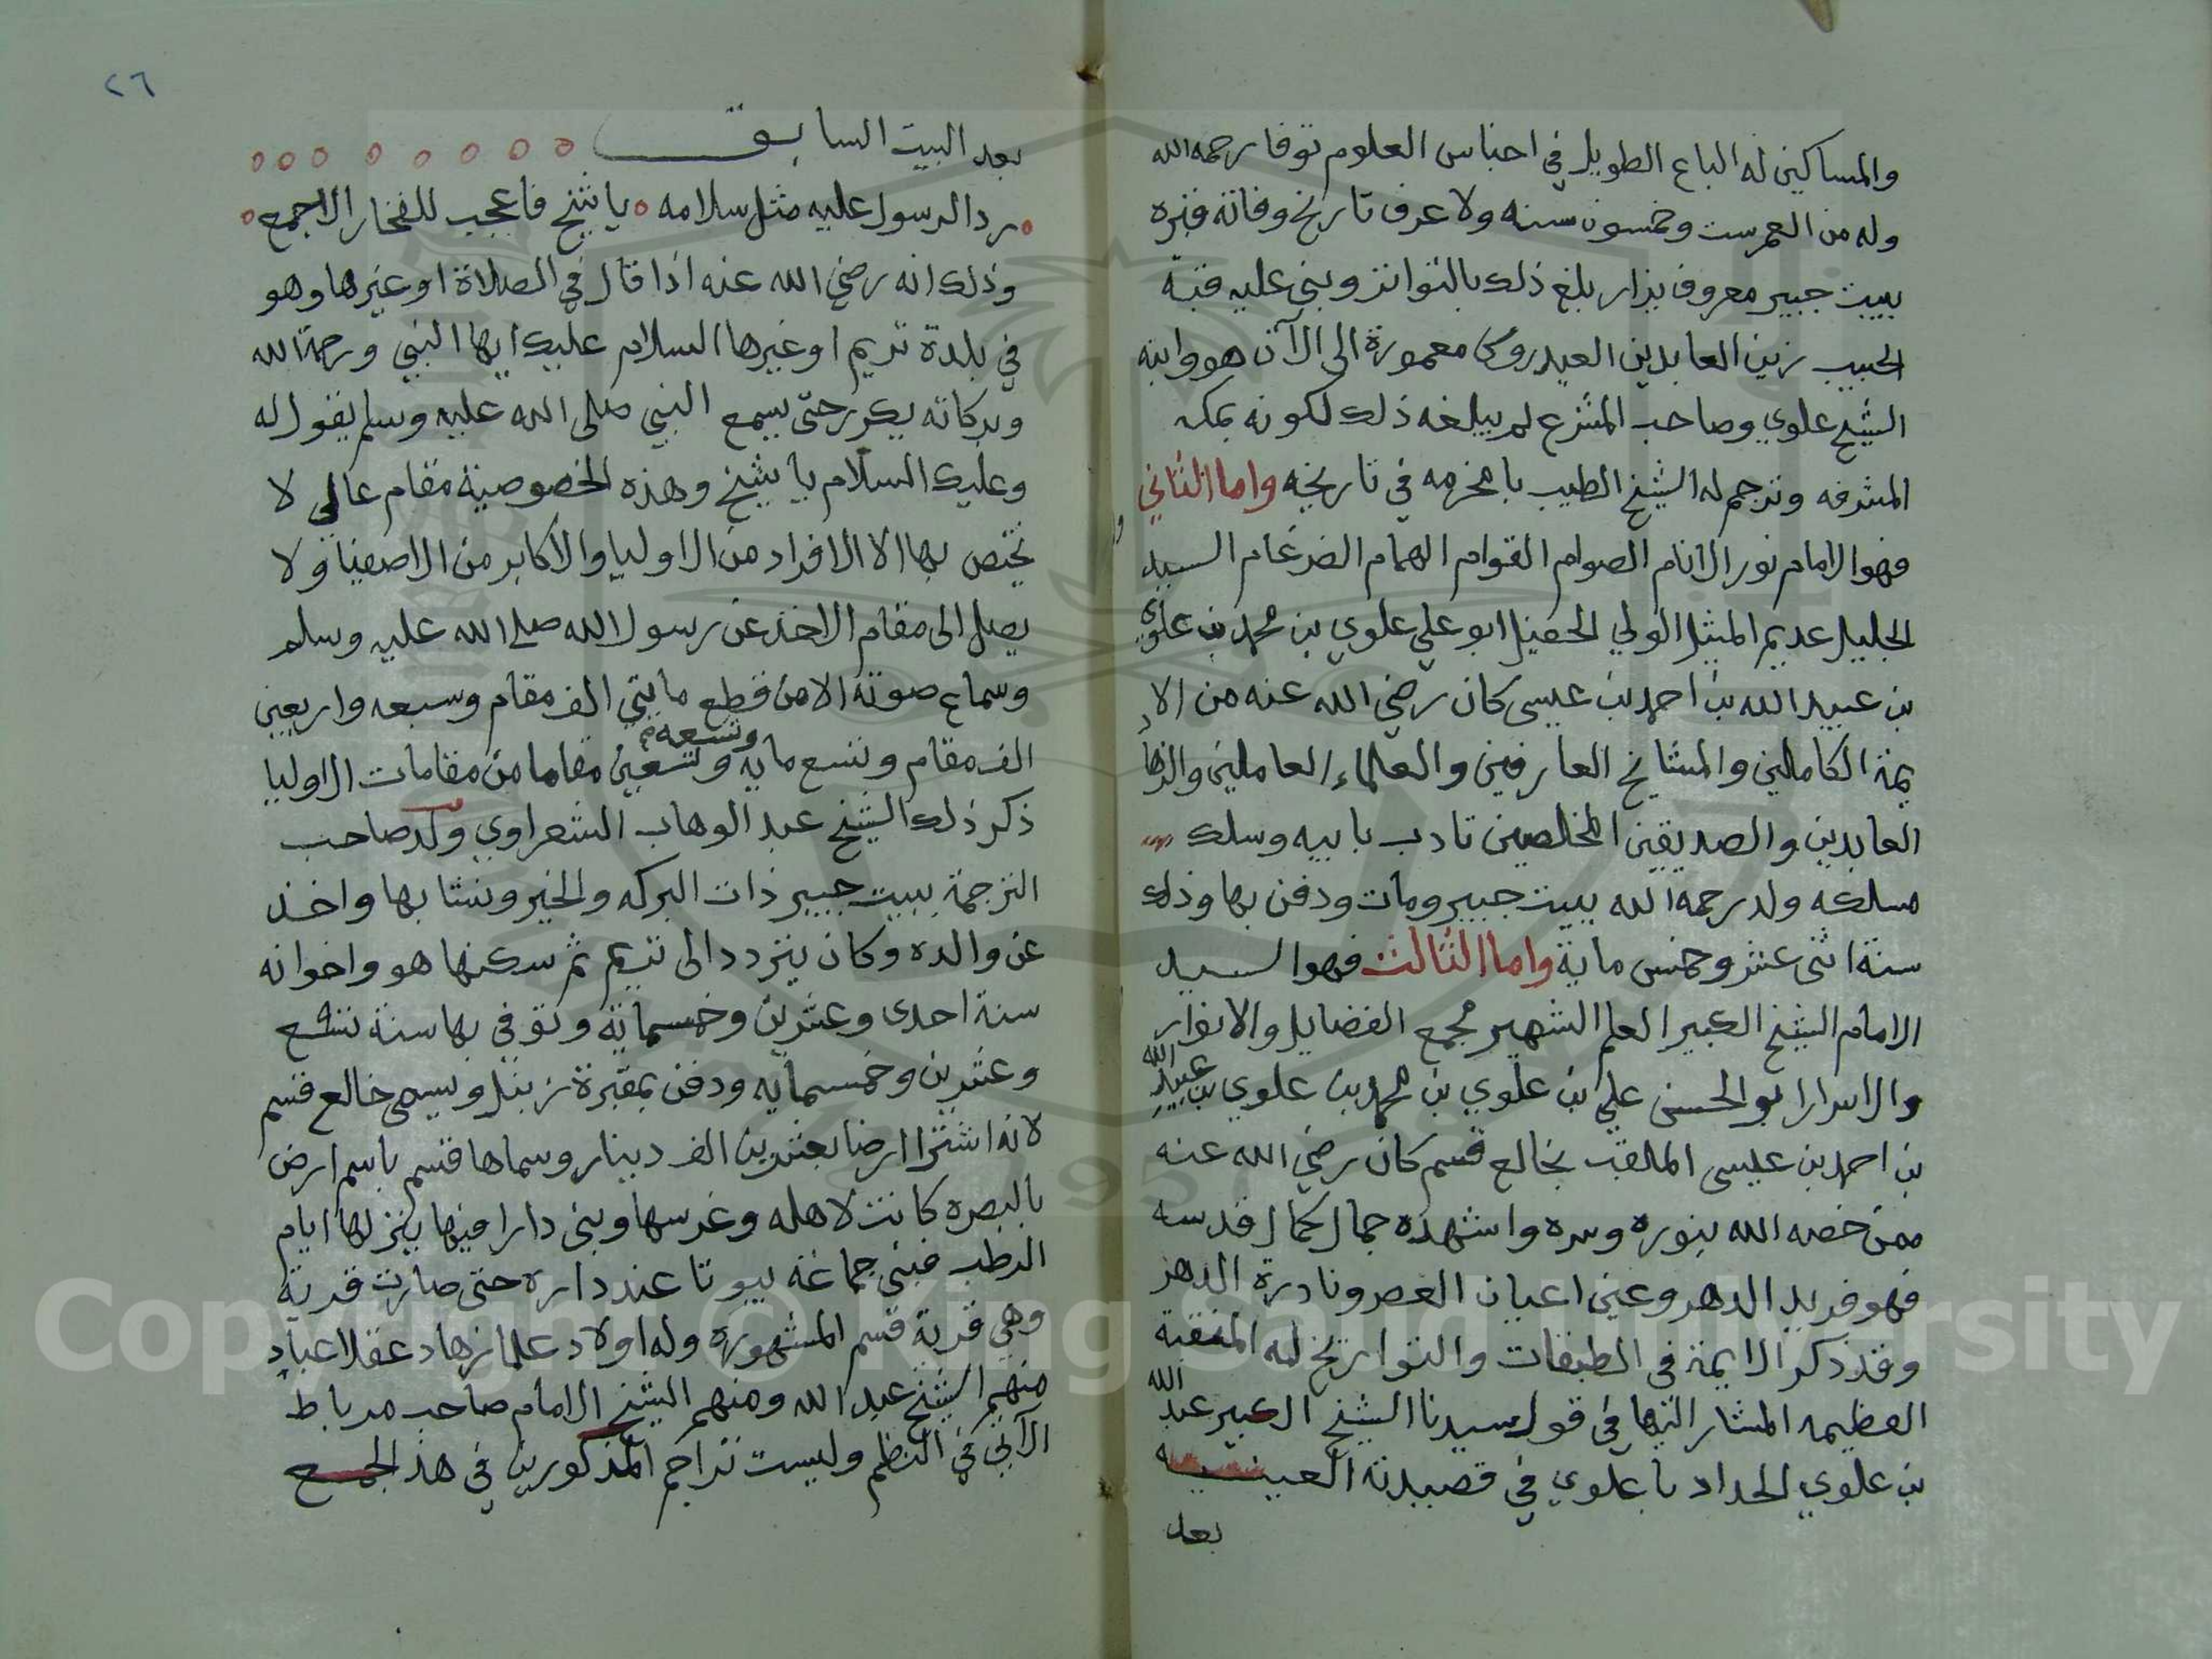 والمساكين له الباع الطويل في اجناس العلوم توفا رحمه الله
وله من العمر ست وخمسون سنه ولا عرف تاريخ وفاته فقبره
ببيت جبير معروف يزار بلغ ذلك بالتواتر وبني عليه قبة
الحبيب زين العابدين العيدروس معمورة الى الآن هو وابنه
الشيخ علوي وصاحب المشرع لم يبلغه ذلك لكونه بمكه
المشرفه وترجم له الشيخ الطيب بامخرمه في تاريخه واما الثاني
فهو الامام نور الانام الصوام القوام الهمام الضرغام السيد
الجليل عديم المثيل الولي الحفيل ابو علي علوي بن محمد بن علوي
بن عبيد الله بن احمد بن عيسى كان رضي الله عنه من الا
يمة الكاملين والمشايخ العارفين والعلماء العاملين والزهاد
العابدين والصديقين المخلصين تادب بابيه وسلك
مسلكه ولد رحمه الله ببيت جبير ومات ودفن بها وذلك
سنة اثنى عشر وخمس ماية واما الثالث فهو السيد
الامام الشيخ الكبير العلم الشهير مجمع الفضايل والانوار
والاسرار ابو الحسن علي بن علوي بن محمد بن علوي بن عبيد الله
بن احمد بن عيسى الملقب بخالع قسم كان رضي الله عنه
ممن خصه الله بنوره وسره واشهده جمال كمال قدسه
فهو فريد الدهر وعين اعيان العصر ونادرة الدهر
وقد ذكر الايمة في الطبقات والتواريخ له المنقبة
العظيمه المشار اليها في قول سيدنا الشيخ الكبير عبد الله
بن علوي الحداد باعلوي في قصيدته العينيه
بعد
٢٦
بعد البيت السابق
رد الرسول عليه مثل سلامه يا شيخ فاعجب للفخار الاجمع
وذلك انه رضي الله عنه اذا قال في الصلاة او غيرها وهو
في بلدة تريم او غيرها السلام عليك ايها النبي ورحمة الله
وبركاته يكرر حتى يسمع النبي صلى الله عليه وسلم يقول له
وعليك السلام يا شيخ وهذه الخصوصية مقام عالي لا
يختص بها الا الافراد من الاوليا والاكابر من الاصفيا ولا
يصل الى مقام الاخذ عن رسول الله صلى الله عليه وسلم
وسماع صوته الا من قطع مايتي الف مقام وسبعه واربعين
الف مقام وتسع مايه وتسعه وتسعين مقاما من مقامات الاوليا
ذكر ذلك الشيخ عبد الوهاب الشعراوي ولد صاحب
الترجمة ببيت جبير ذات البركه والخير ونشا بها واخذ
عن والده وكان يتردد الى تريم ثم سكنها هو واخوانه
سنة احدى وعشرين وخمسماية وتوفي بها سنة تسع
وعشرين وخمسمايه ودفن بمقبرة زنبل ويسمى خالع قسم
لانه اشترا ارضا بعشرين الف دينار وسماها قسم باسم ارض
بالبصره كانت لاهله وغرسها وبنى دارا فيها ينزلها ايام
الرطب فبنى جماعة بيوتا عند داره حتى صارت قرية
وهي قرية قسم المشهوره وله اولاد علما زهاد عقلا عباد
منهم الشيخ عبد الله ومنهم الشيخ الامام صاحب مرباط
الآتي في النظم وليست تراجم المذكورين في هذ الجمع